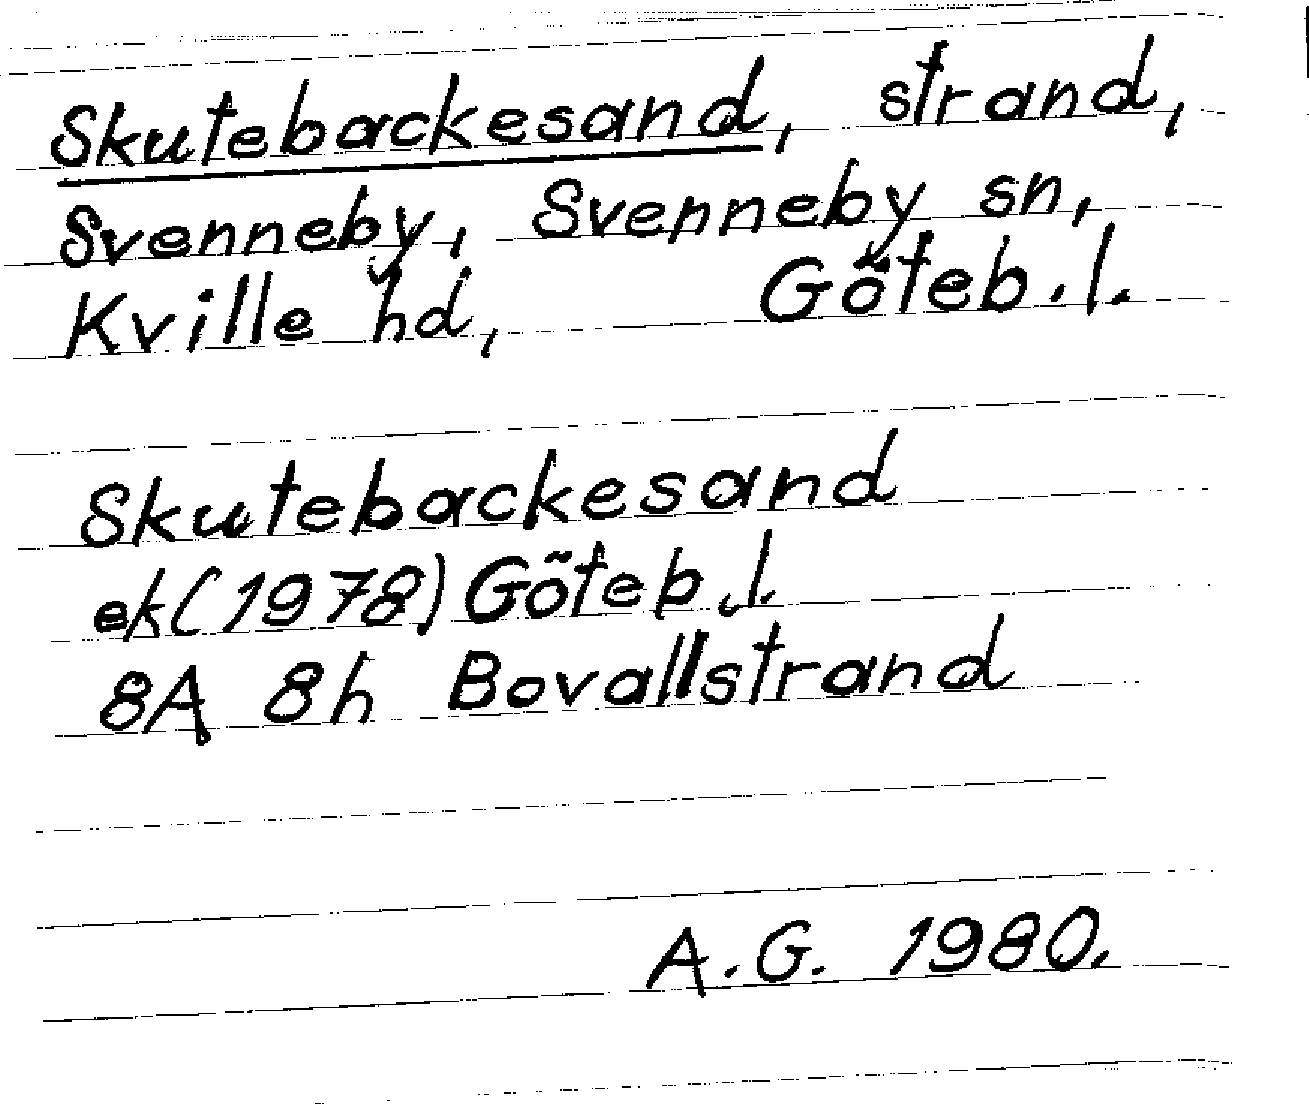 Skutebackesand, strand,
Svenneby, Svenneby sn,
Kville hd, Göteb.l.
Skutebackesand
ek(1978) Göteb.l.
8A 8h Bovallstrand
A.G. 1980.